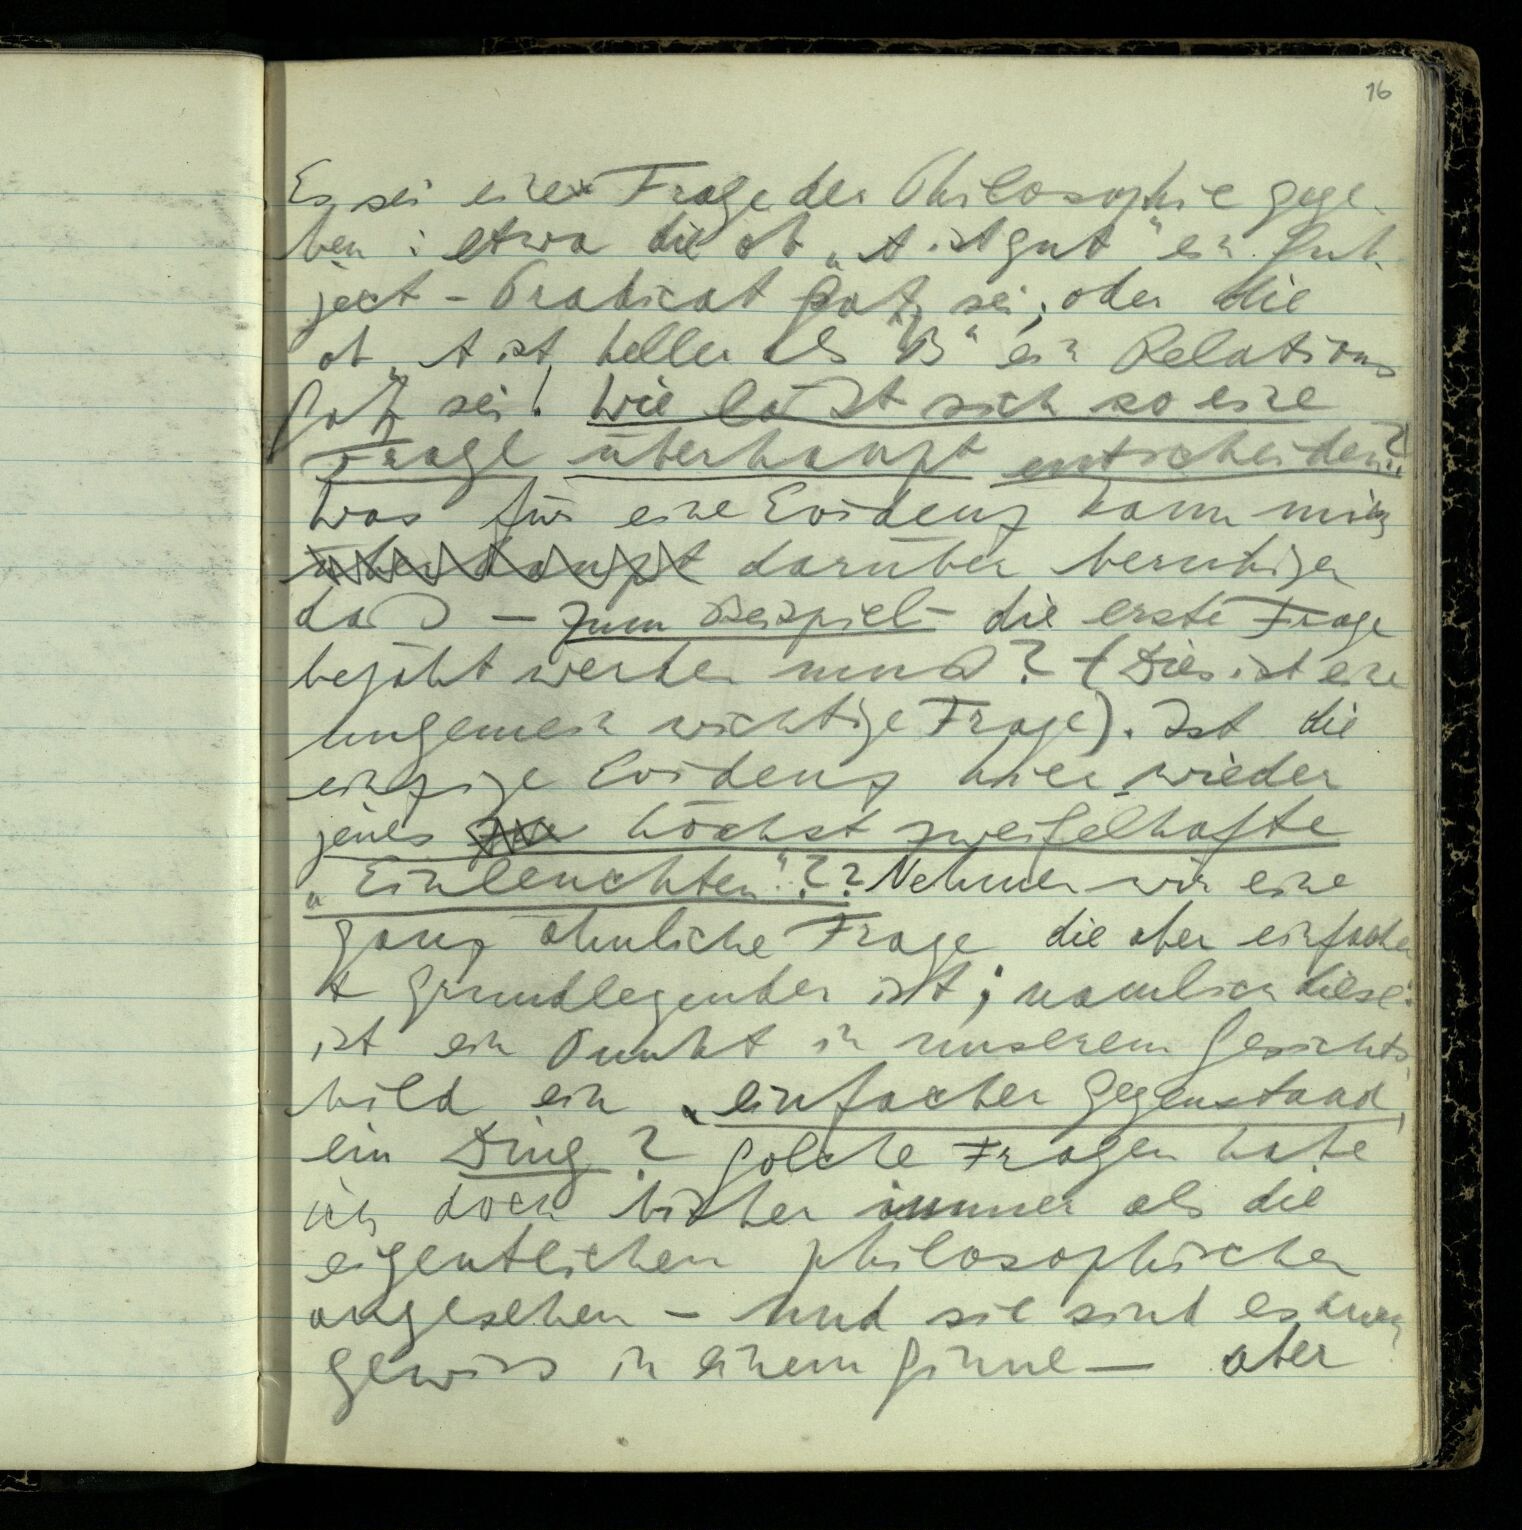 16
Es sei eine Frage der Philosophie gege-
ben: etwa die ob „A ist gut" ein Sub-
ject-Prädicat Satz sei; oder die
ob „A ist heller als B" ein Relations
Satz sei! Wie läßt sich so eine
Frage überhaupt entscheiden?!
Was für eine Evidenz kann mich
überhaupt darüber beruhigen
daß – zum Beispiel – die erste Frage
bejaht werden muß? (Dies ist eine
ungemein wichtige Frage). Ist die
einzige Evidenz hier wieder
jenes höchst zweifelhafte
„Einleuchten"?? Nehmen wir eine
ganz ähnliche Frage die aber einfacher
+ grundlegender ist; nämlich diese:
ist ein Punkt in unserem Gesichts-
bild ein einfacher Gegenstand,
ein Ding? Solche Fragen habe
ich doch bisher immer als die
eigentlichen philosophischen
angesehen – und sie sind es auch
gewiss in einem Sinne – aber